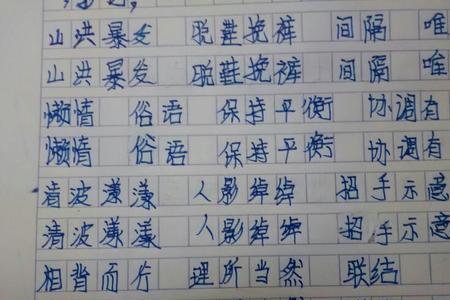 山洪暴发 脱鞋挽裤 间隔 唯
山洪暴发 脱鞋挽裤 间隔 唯
懒惰 俗语 保持平衡 协调有
懒惰 俗语 保持平衡 协调有
清波漾漾 人影绰绰 招手示意
清波漾漾 人影绰绰 招手示意
相背而行 理所当然 联结